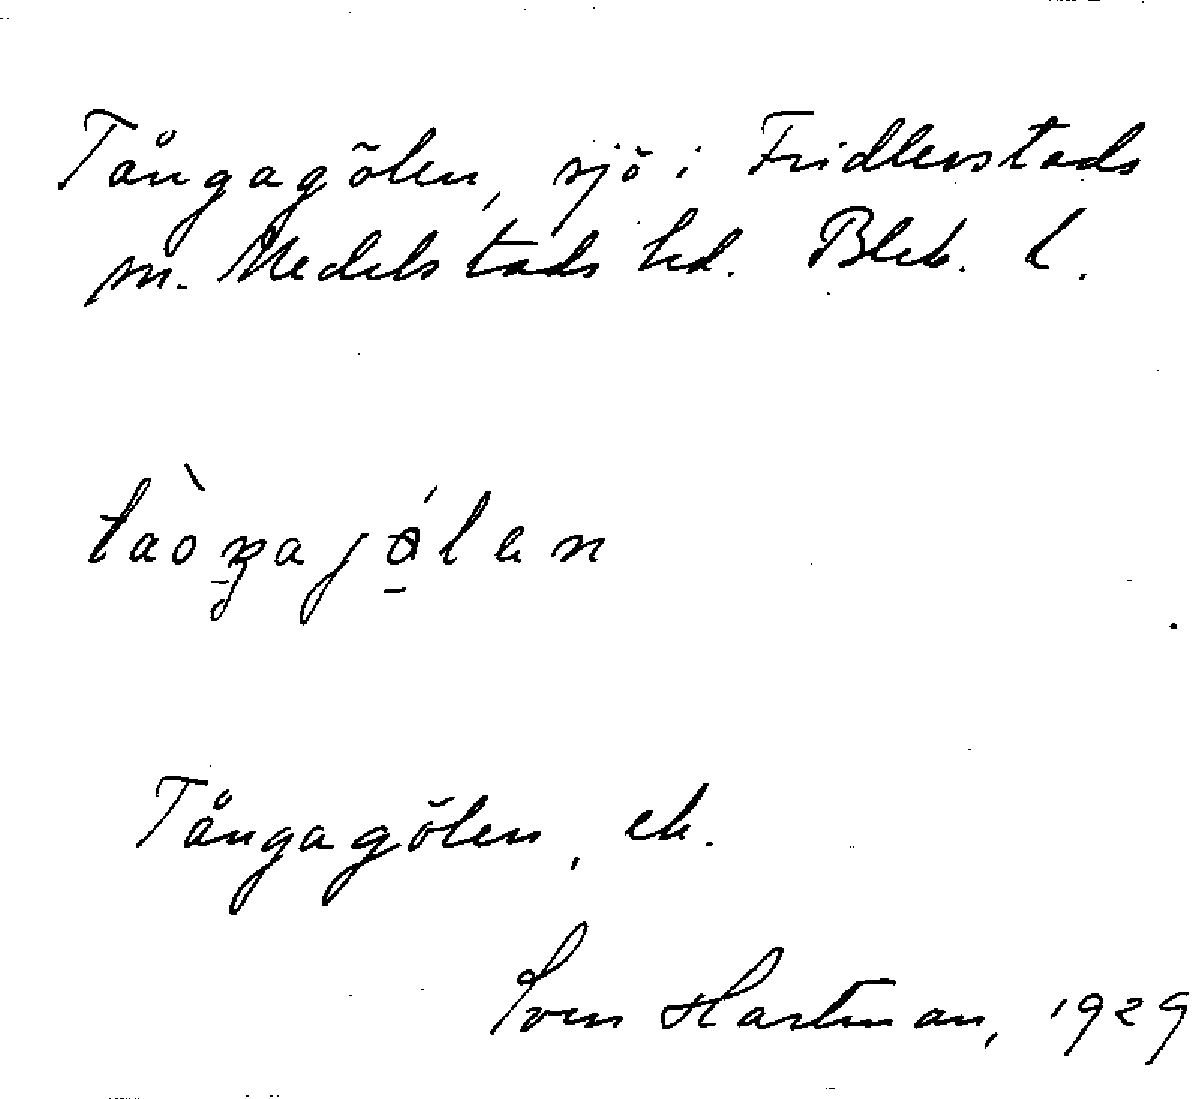 Tångagölen, sjö i Fridlevstads
sn. Medelstads hd. Blek. l.
Tångagölen, ek.
Sven Hartman, 1929